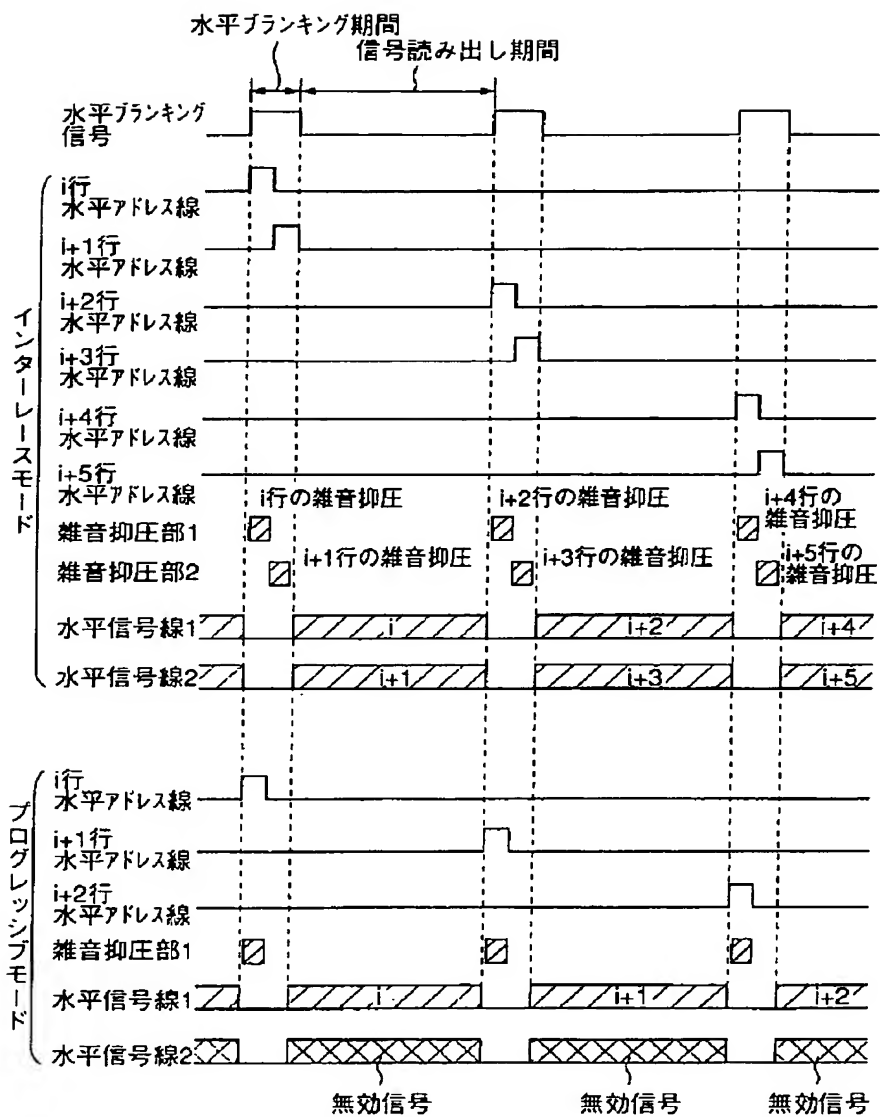 水平ブランキング期間
信号読み出し期間
水平ブランキング
信号
インターレースモード
i行
水平アドレス線
i+1行
水平アドレス線
i+2行
水平アドレス線
i+3行
水平アドレス線
i+4行
水平アドレス線
i+5行
水平アドレス線
i行の雑音抑圧
i+2行の雑音抑圧
i+4行の
雑音抑圧
雑音抑圧部1
雑音抑圧部2
i+1行の雑音抑圧
i+3行の雑音抑圧
i+5行の
雑音抑圧
水平信号線1
i
i+2
i+4
水平信号線2
i+1
i+3
i+5
プログレッシブモード
i行
水平アドレス線
i+1行
水平アドレス線
i+2行
水平アドレス線
雑音抑圧部1
水平信号線1
i
i+1
i+2
水平信号線2
無効信号
無効信号
無効信号